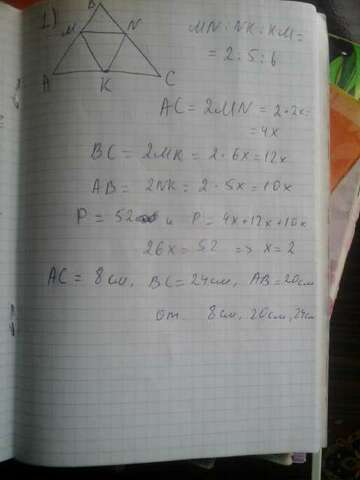 1)
B
M N
A K C
MN : NK : KM =
= 2 : 5 : 6
AC = 2MN = 2 · 2x =
= 4x
BC = 2MK = 2 · 6x = 12x
AB = 2NK = 2 · 5x = 10x
P = 52 и P = 4x + 12x + 10x
26x = 52 => x = 2
AC = 8 см, BC = 24 см, AB = 20 см
от. 8 см, 20 см, 24 см